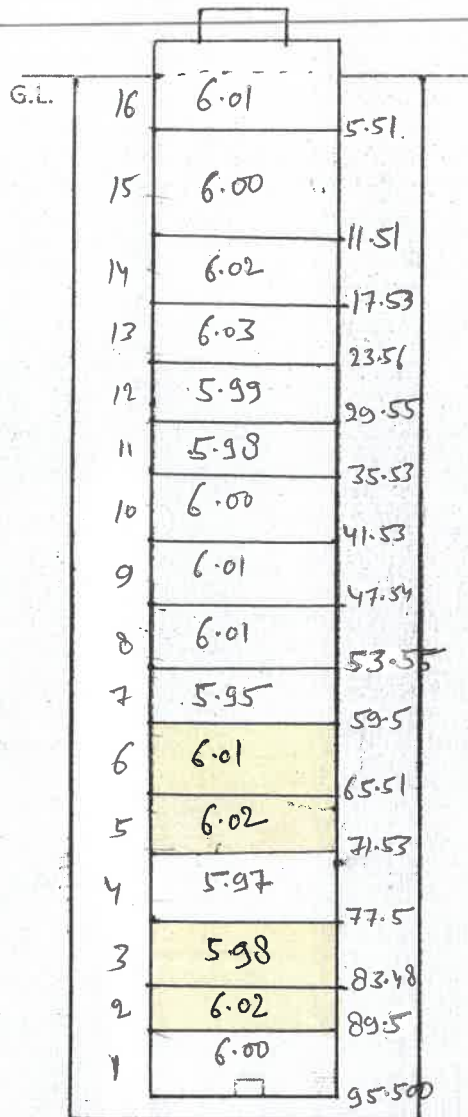 G.L.
16 6.01
5.51.
15 6.00
11.51
14 6.02
17.53
13 6.03
23.56
12 5.99
29.55
11 5.98
35.53
10 6.00
41.53
9 6.01
47.54
8 6.01
53.55
7 5.95
59.5
6 6.01
65.51
5 6.02
71.53
4 5.97
77.5
3 5.98
83.48
2 6.02
89.5
1 6.00
95.500